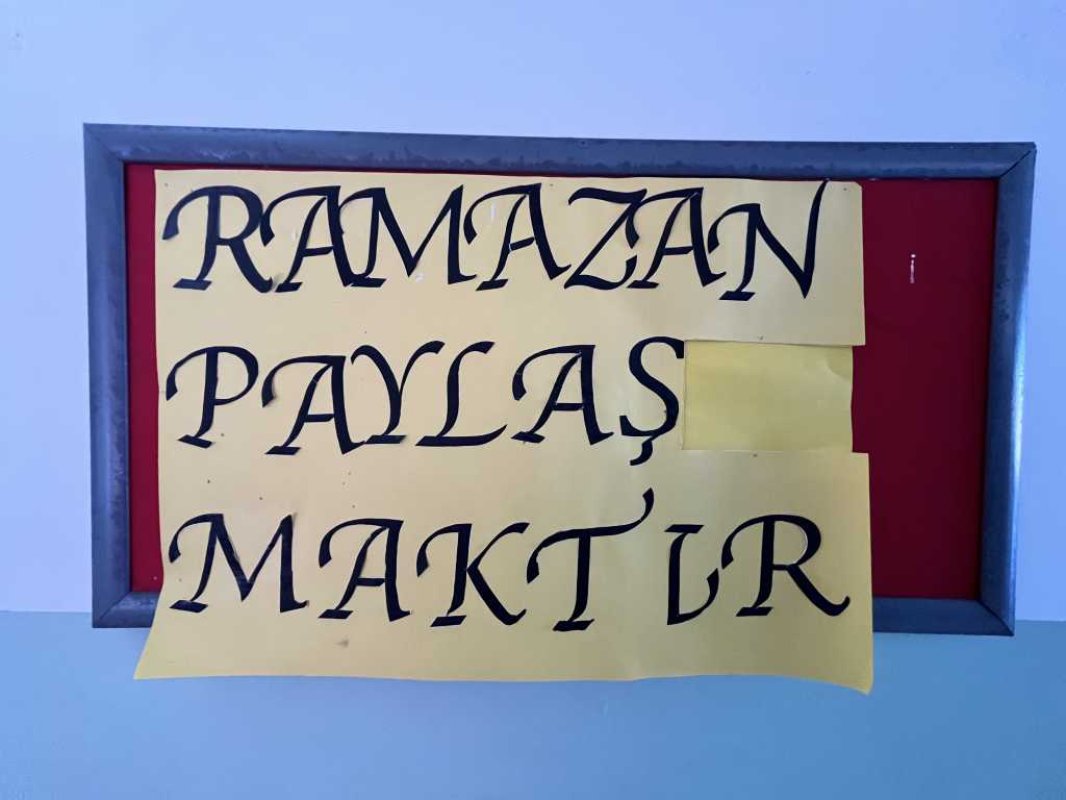 RAMAZAN
PAYLAŞ
MAKTIR